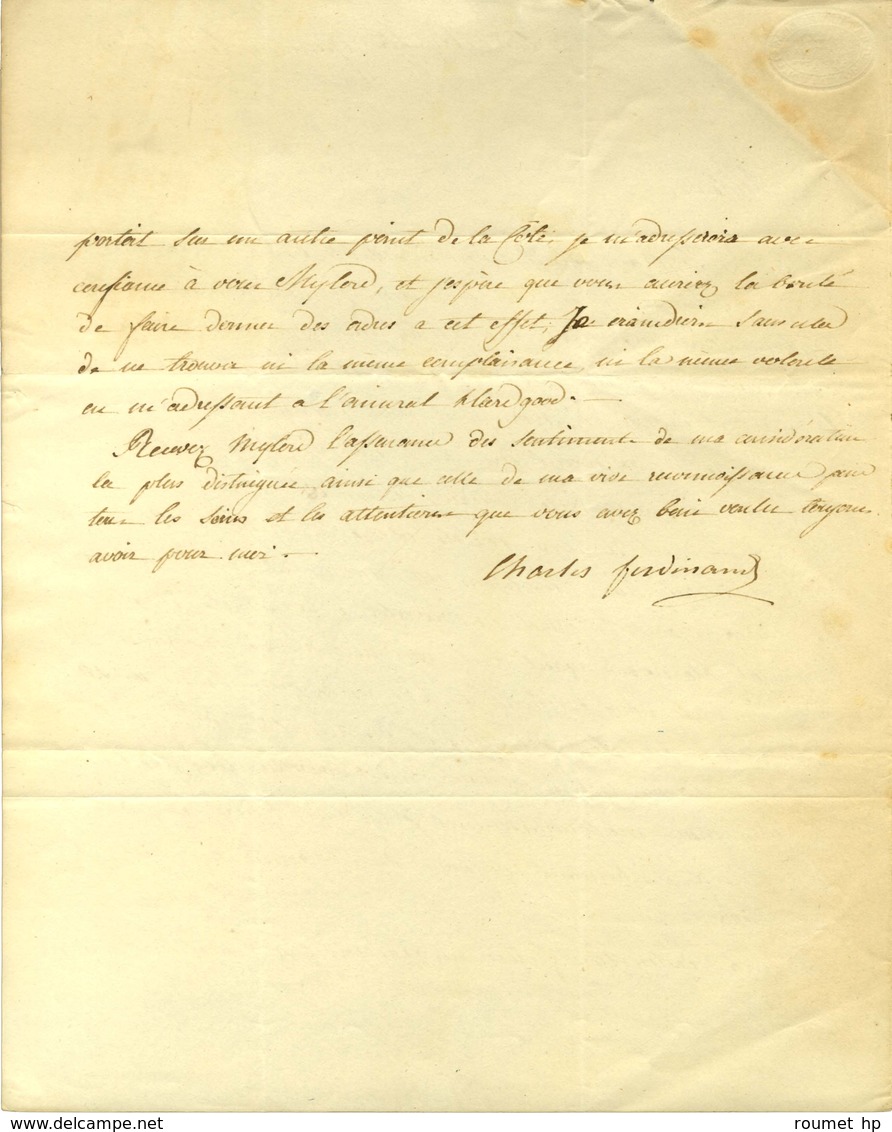 portoit sur un autre point de la Côte, je m'adresserois avec
confiance à vous Mylord, et j'espère que vous auriez la bonté
de faire donner des ordres a cet effet, Je craindrois sans cela
de ne trouver ni la meme complaisance, ni la meme volonté
en m'adressant a l'amiral
Recevez Mylord l'assurance des sentiments de ma considération
la plus distinguée, ainsi que celle de ma vive reconnoissance pour
tous les soins et les attentions que vous avez bien voulu toujours
avoir pour moi.
Charles ferdinand
delcampe.net
roumet hp